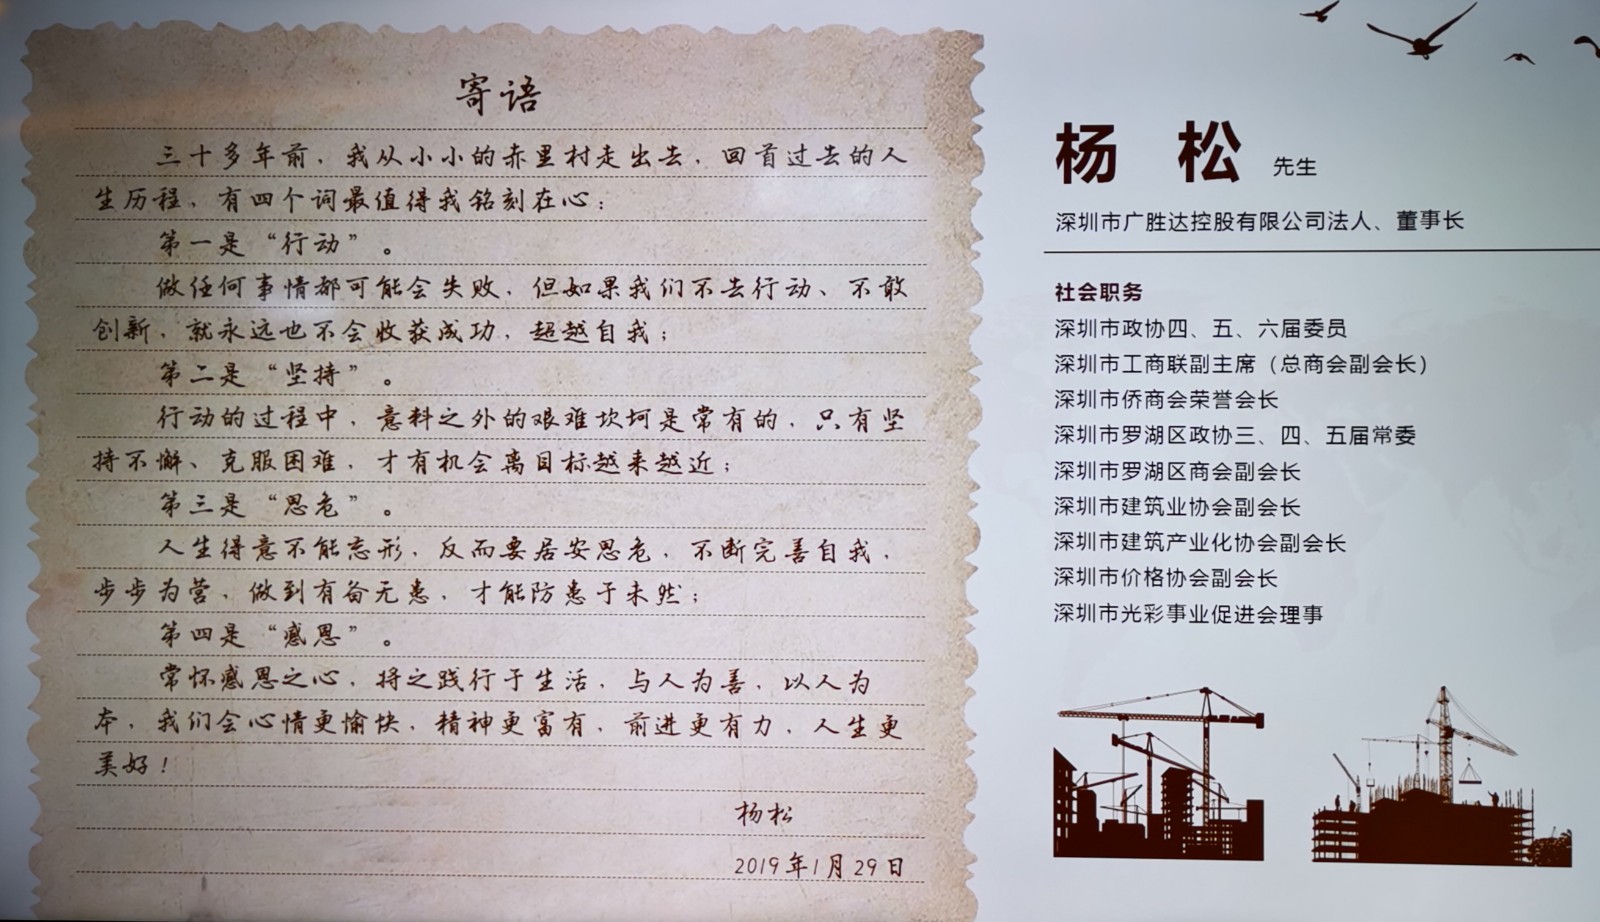 寄语
三十多年前，我从小小的赤里村走出去，回首过去的人
生历程，有四个词最值得我铭刻在心：
第一是“行动”。
做任何事情都可能会失败，但如果我们不去行动、不敢
创新，就永远也不会收获成功，超越自我；
第二是“坚持”。
行动的过程中，意料之外的艰难坎坷是常有的，只有坚
持不懈、克服困难，才有机会离目标越来越近；
第三是“思危”。
人生得意不能忘形，反而要居安思危，不断完善自我，
步步为营，做到有备无患，才能防患于未然；
第四是“感恩”。
常怀感恩之心，将之践行于生活，与人为善，以人为
本，我们会心情更愉快，精神更富有，前进更有力，人生更
美好！
杨松
2019年1月29日
杨松 先生
深圳市广胜达控股有限公司法人、董事长
社会职务
深圳市政协四、五、六届委员
深圳市工商联副主席（总商会副会长）
深圳市侨商会荣誉会长
深圳市罗湖区政协三、四、五届常委
深圳市罗湖区商会副会长
深圳市建筑业协会副会长
深圳市建筑产业化协会副会长
深圳市价格协会副会长
深圳市光彩事业促进会理事